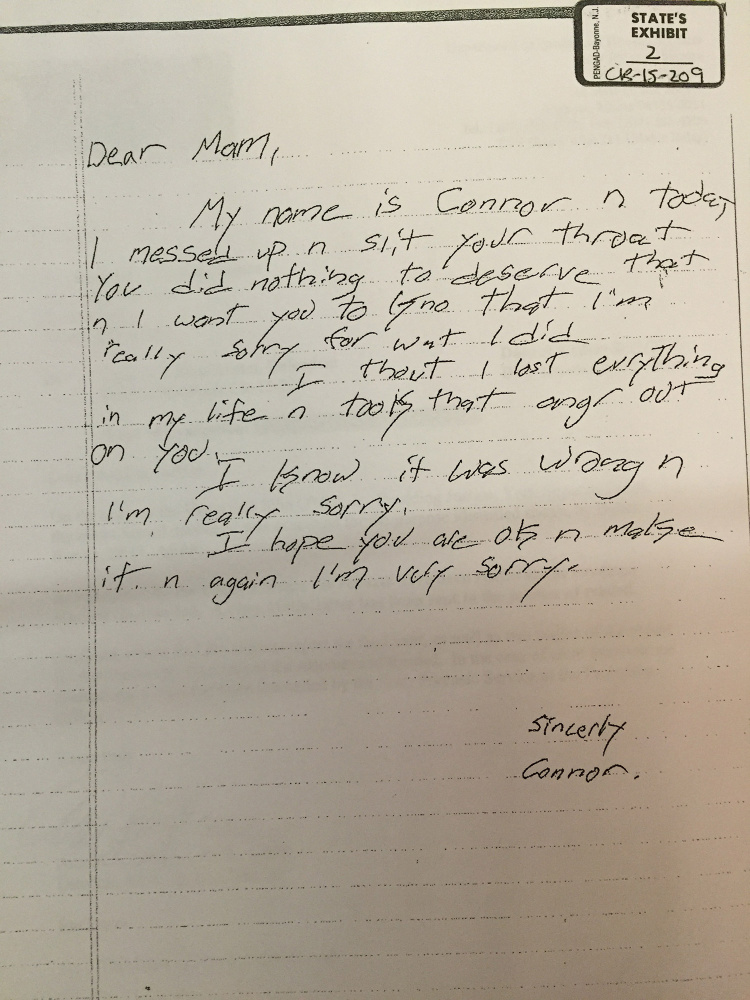 STATE'S
EXHIBIT
2
CR-15-209
PENGAD-Bayonne, N.J.
Dear Mam,
My name is Connor n today
I messed up n slit your throat
You did nothing to deserve that
n I want you to kno that I'm
really sorry for wut I did
I thout I lost evrything
in my life n took that angr out
on you.
I know it was wrong n
I'm really sorry.
I hope you are ok n make
it. n again I'm vry sorry.
Sincerly
Connor.